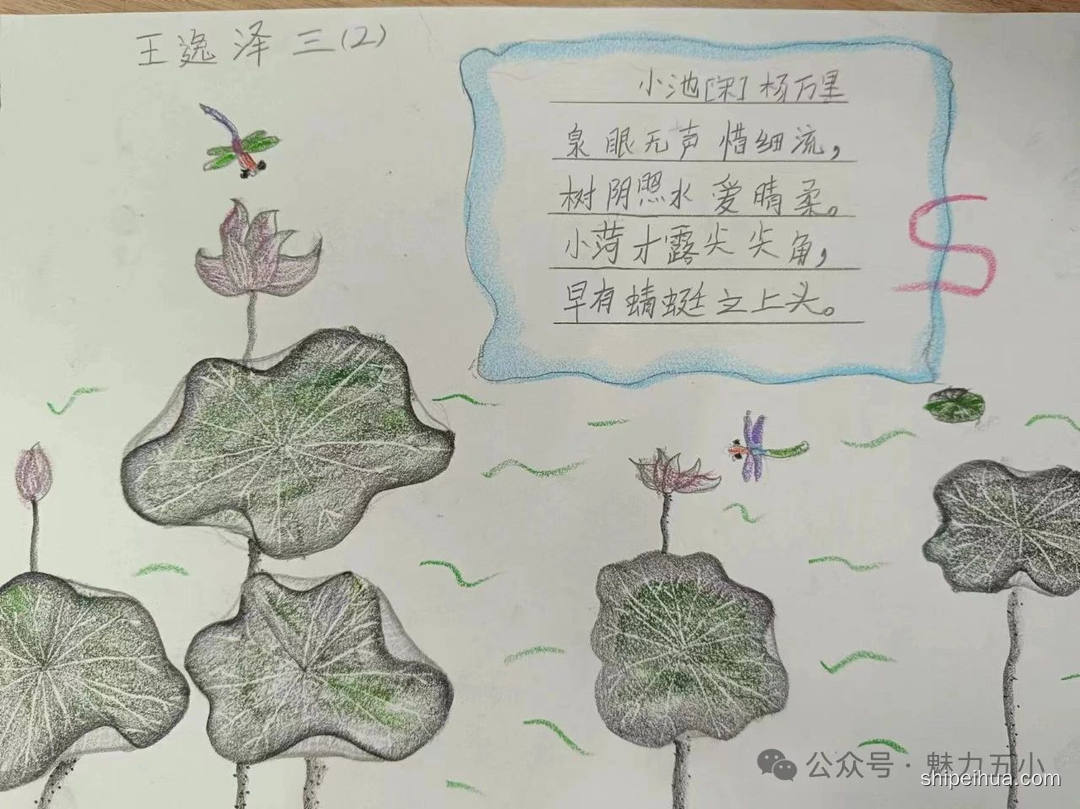 王逸泽 三(2)
小池[宋] 杨万里
泉眼无声惜细流，
树阴照水爱晴柔。
小荷才露尖尖角，
早有蜻蜓立上头。
S
公众号·魅力五小
shipeihua.com